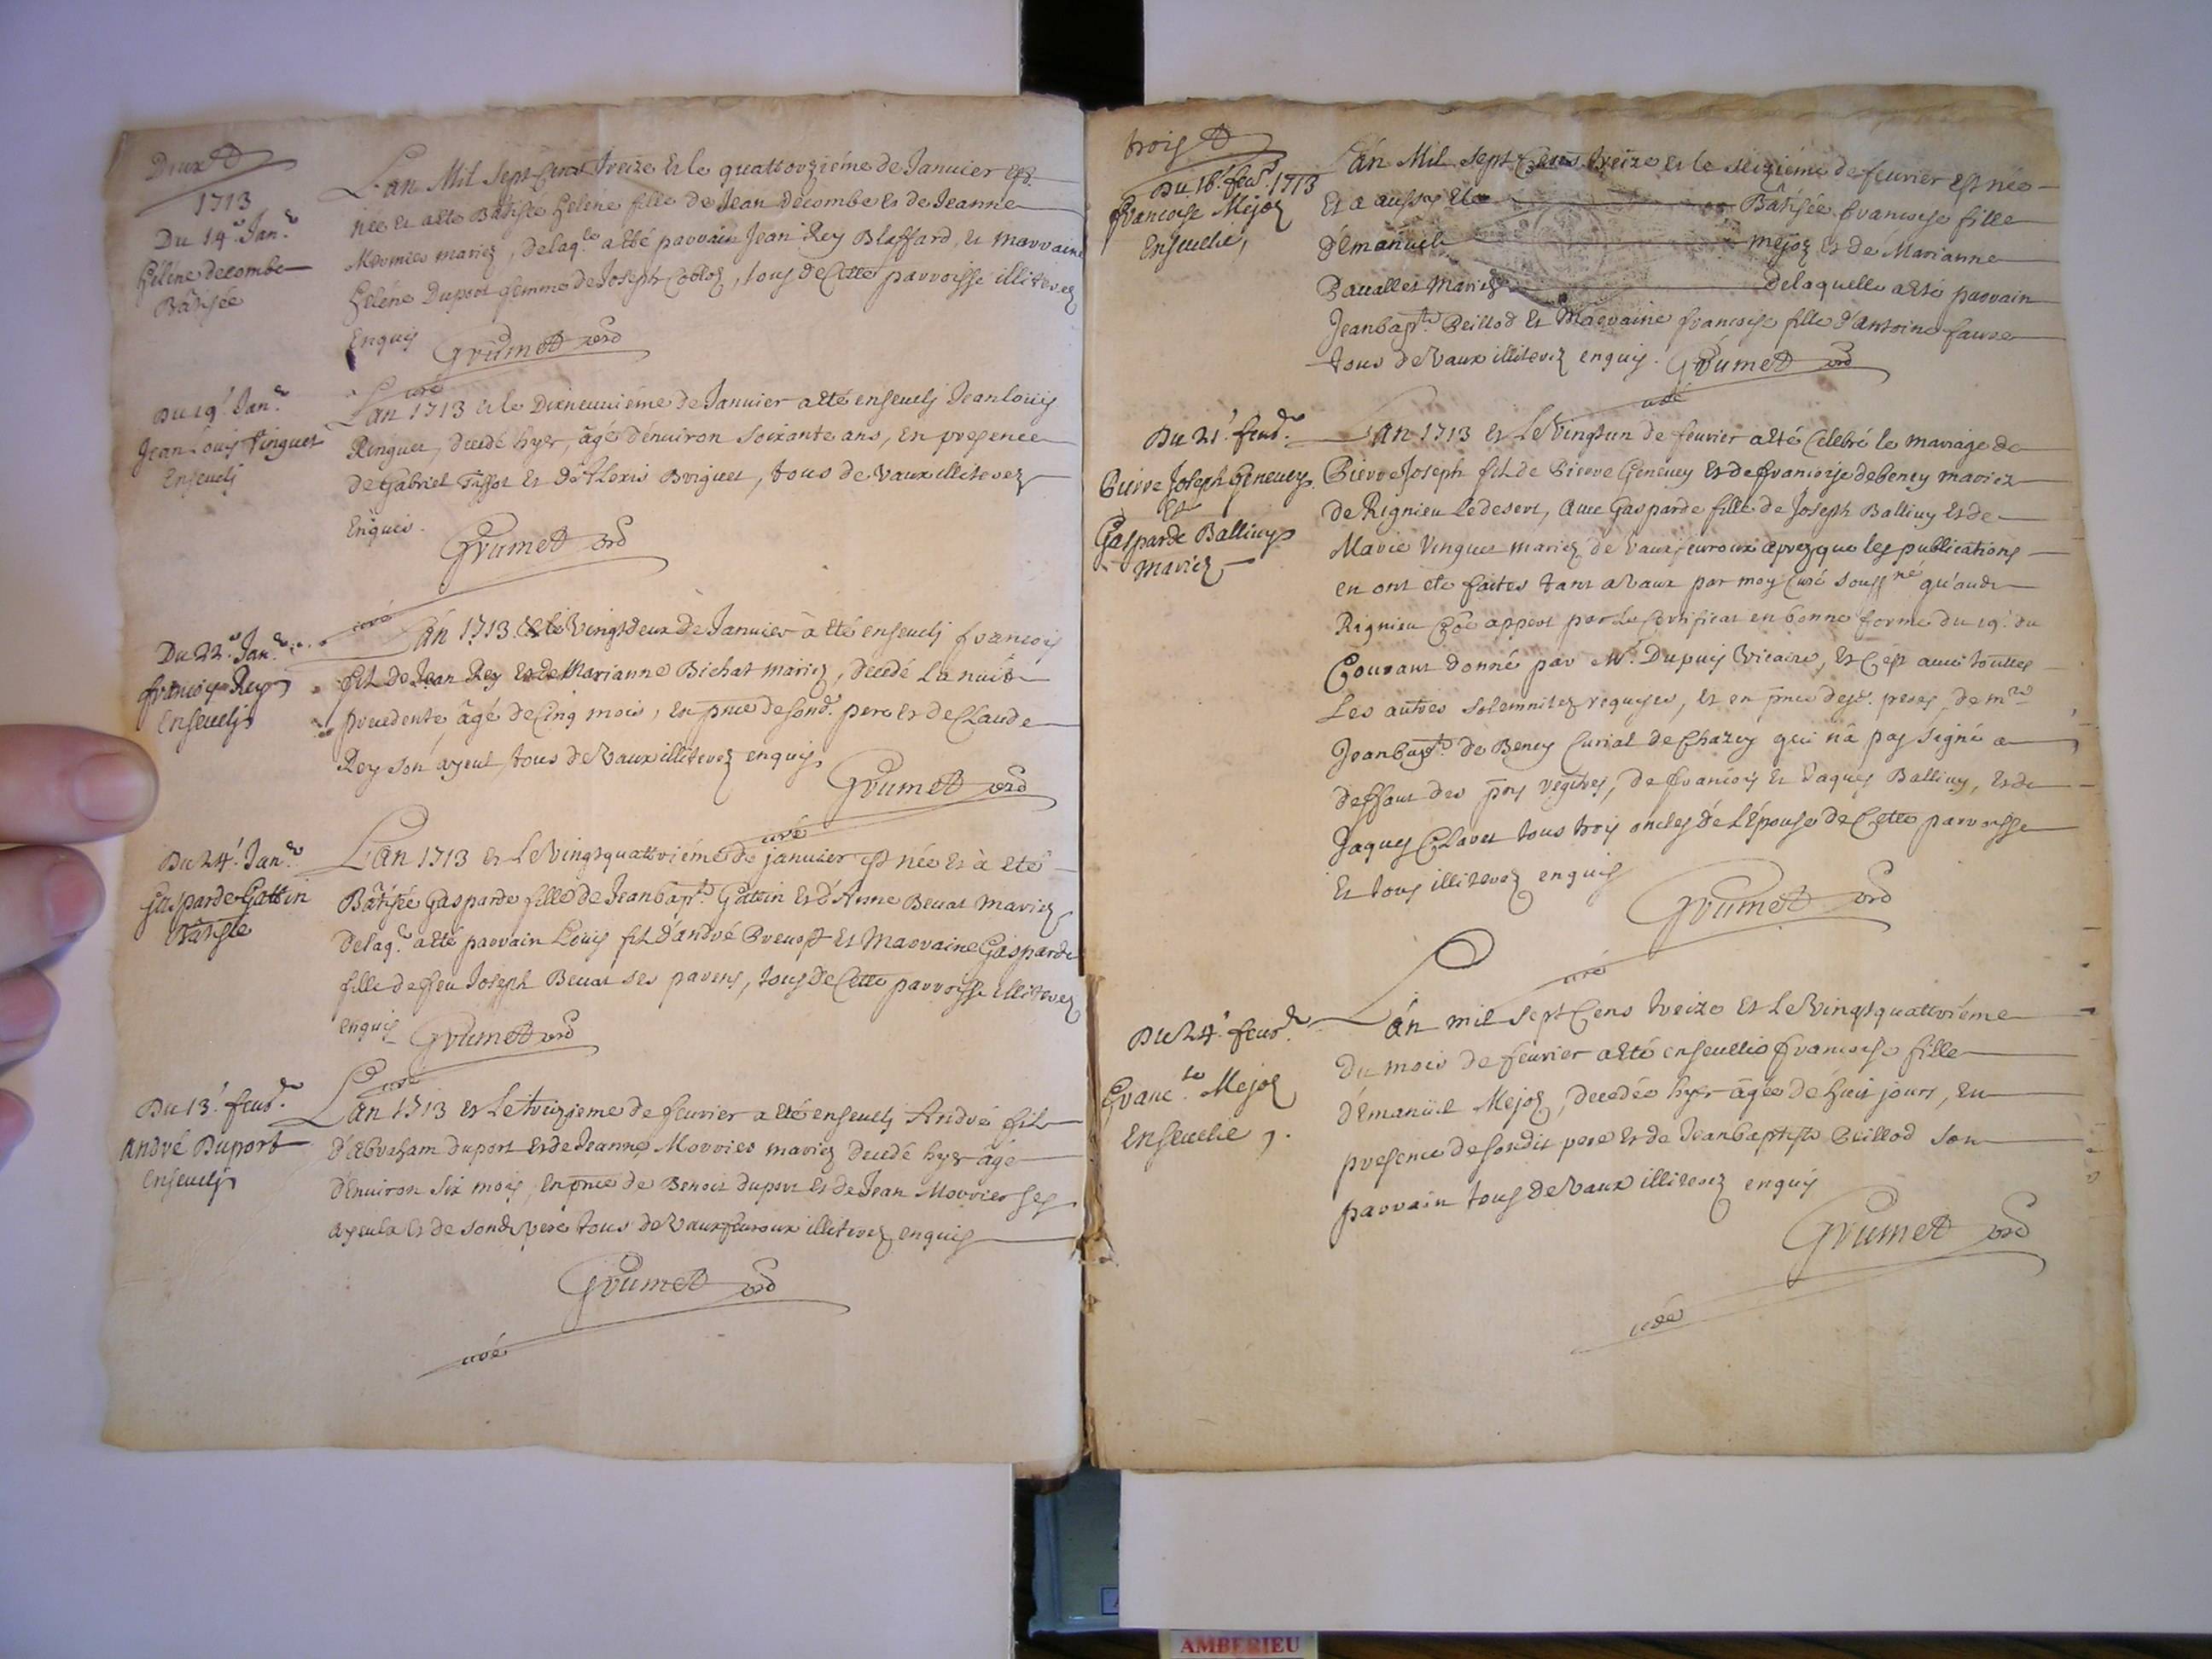 Deux
1713
Du 14e Janr
Hélene decombe
Bâtisée
L'an Mil Sept Cens treize et le quattorziéme de Janvier est
née et a esté Bâtisée helene fille de Jean decombe et de Jeanne
mariez, delaqle a été parrain Jean Rey Blaffard, et marraine
heléne Duport femme de Joseph, tous de Cette parroisse illiterez
Enquis Grumet
curé
Du 19e Janr
Jean Louis Pinguet
Ensevely
L'an 1713 et le Dixneuviéme de Janvier a eté ensevely Jean louis
Pinguet, decedé hyer, âgé d'environ soixante ans, en presence
de Gabriel Tissot et d'Alexis Briguet, tous de Vaux illiterez
Enquis.
Grumet
curé
Du 22e Janr
françois Rey
Ensevely
L'an 1713 et le Vingtdeux de Janvier à eté ensevely françois
fils de Jean Rey et de Marianne Bichat mariez, decedé La nuit
precedente, âgé de Cinq mois, en pnce de sond. pere et de Claude
Rey son ayeul, tous de Vaux illiterez enquis
Grumet
curé
Du 24e Janr
Gasparde Gattin
Bâtisée
L'an 1713 et Le Vingtquattriéme de janvier est née et à eté
Bâtisée Gasparde fille de Jeanbapte Gattin et d'Anne Beuat Mariez
delaqle a eté parrain Louis fils d'andré et Marraine Gasparde
fille de feu Joseph Beuat ses parens, tous de Cette parroisse illiterez
enquis Grumet
curé
Du 13e fevr
André Duport
Ensevely
L'an 1713 et Le treizieme de fevrier a eté ensevely André fils
d'Abraham duport et de Jeanne Morrier mariez decedé hyer âgé
d'Environ six mois, en pnce de Benoit duport et de Jean Morrier ses
ayeuls et de sond. pere tous de Vaux illiterez enquis
Grumet
curé
trois
Du 16e fevr 1713
françoise Mejoz
Ensevelie,
L'an Mil sept Cens treize et le seiziéme de fevrier est née
Et a aussy eté Bâtisée françoise fille
d'Emanuel mejoz et de Marianne
mariez delaquelle a eté parrain
Jeanbapte Beillod et Marraine françoise fille d'Antoine faure
tous de Vaux illiterez enquis. Grumet
curé
Du 21e fevr
Pierre Joseph Genevey
Et
Gasparde Balliuy
mariez
L'an 1713 et Le Vingtun de fevrier a eté Celebré le mariage de
Pierre Joseph fils de Pierre Genevey et de françoise debeney mariez
de Rignieu Ledesert, avec Gasparde fille de Joseph Balliuy et de
Marie Vinguet mariez de Vaux aprez que les publications
en ont eté faites tant a Vaux par moy Curé soussné qu'audt
Rignieu Côe appert par Le Certificat en bonne forme du 19e du
Courant donné par Mr Dupuy Vicaire, et C'est avec touttes
Les autres solemnitez requyses, et en pnce desd. peres, de mre
Jeanbapte de Beney Curial de Chazey qui n'a pas signé a
deffaut des régistres, de françois et Jaques Balliuy, et de
Jaques Clavet tous trois oncles de L'Epouse de Cette parroisse
Et tous illiterez enquis
Grumet
curé
Du 24e fevr
france Mejoz
Ensevelie,
L'an mil sept Cens treize et Le Vingtquattriéme
du mois de fevrier a eté ensevellie françoise fille
d'Emanuel Mejoz, decedée hyer âgée de huit jours, en
presence de sondit pere et de Jeanbaptiste Beillod son
parrain tous de Vaux illiterez enquis
Grumet
curé
AMBERIEU